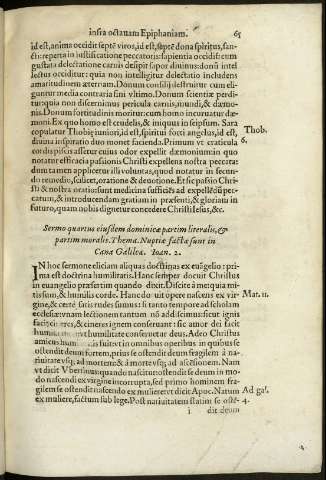 infra octauam Epiphaniam. 65
id est, anima occidit septē viros, id est, septē dona spiritus, san-
cti: reperta in iustificatione peccatoris: sapientia de cœlestibus cum
gustata delectatione carnis desipit sapor diuinus: donū intel
lectus occiditur: quia non intelligitur delectatio includens
amaritudinem æternam. Donum consilij destruitur cum eli-
guntur media contraria fini vltimo. Donum scientiæ perdi-
tur: quia non discernimus pericula carnis, mundi, & dæmo-
nis. Donum fortitudinis moritur: cum homo incuruatur dæ-
moni. Ex quo homo est crudelis, & iniquus in seipsum. Sara
copulatur Thobię iuniori, id est, spiritui forti angelus, id est,
diuina inspiratio duo monet facienda. Primum vt craticula
cordis piscis assetur cuius odor expellit dæmonium: in quo
notatur efficacia passionis Christi expellens nostra peccata:
dum tamen applicetur illi voluntas, quod notatur in secun-
do remedio, scilicet, oratione & deuotione. Et sic passio Chri-
sti & nostra oratio: sunt medicina sufficiēs ad expellēdū pec-
catum, & introducendam gratiam in præsenti, & gloriam in
futuro, quam nobis dignetur concedere Christi Iesus, &c.
Thob.
6.
Sermo quartus eiusdem dominicæ partim literalis, &
partim moralis. Thema. Nuptiæ factæ sunt in
Cana Galileæ. Ioan. 2.
IN hoc sermone eliciam aliquas doctrinas ex euāgelio: pri-
ma est doctrina humilitatis. Hanc semper docuit Christus
in euangelio præsertim quando dixit. Discite à me quia mi-
tis sum, & humilis corde. Hanc do uit opere nascens ex vir-
gine, & certè satis rudes sumus: si tanto tempore ad scholam
ecclesiæ: vnam lectionem tantum nō addiscimus: sicut ignis
facit cineres, & cineres ignem conseruant: sic amor dei facit
humilitatem, & humilitate conseruatur deus. Adeo Christus
amicus humilitatis fuit vt in omnibus operibus in quibus se
ostendit deum fortem, prius se ostendit deum fragilem à na-
tiuitate vsq; ad mortem: & à morte vsq; ad ascēsionem. Nam
vt dicit Vbertinus: quando nasciturus ostendit se deum in mo-
do nascendi ex virgine incorrupta, sed primo hominem fra-
gilem se ostendit nascendo ex muliere vt dicit Apoc. Natum
ex muliere, factum sub lege. Post natiuitatem statim se ostē-
Mat. 11.
Ad gal.
4.
i dit deum